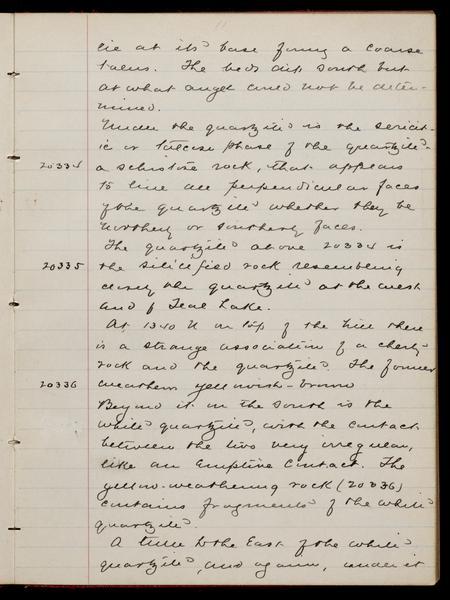 lie at its base forming a coarse
talus. The beds dip south but
at what angle could not be deter-
mined.
Under the quartzite is the sericit-
ic or talcose phase of the quartzite -
20334 a schistose rock, that appears
to line all perpendicular faces
of the quartzite whether they be
northerly or southerly faces.
The quartzite above 20334 is
20335 the silicified rock resembling
closely the quartzite at the west
end of Teal Lake.
At 1340 N on top of the hill there
is a strange association of a cherty
rock and the quartzite. The former
20336 weathers yellowish-brown
Beyond it on the south is the
white quartzite, with the contact
between the two very irregular,
like an Eruptive contact. The
yellow-weathering rock (20336)
contains fragments of the white
quartzite
A little to the East of the white
quartzite, and again, under it